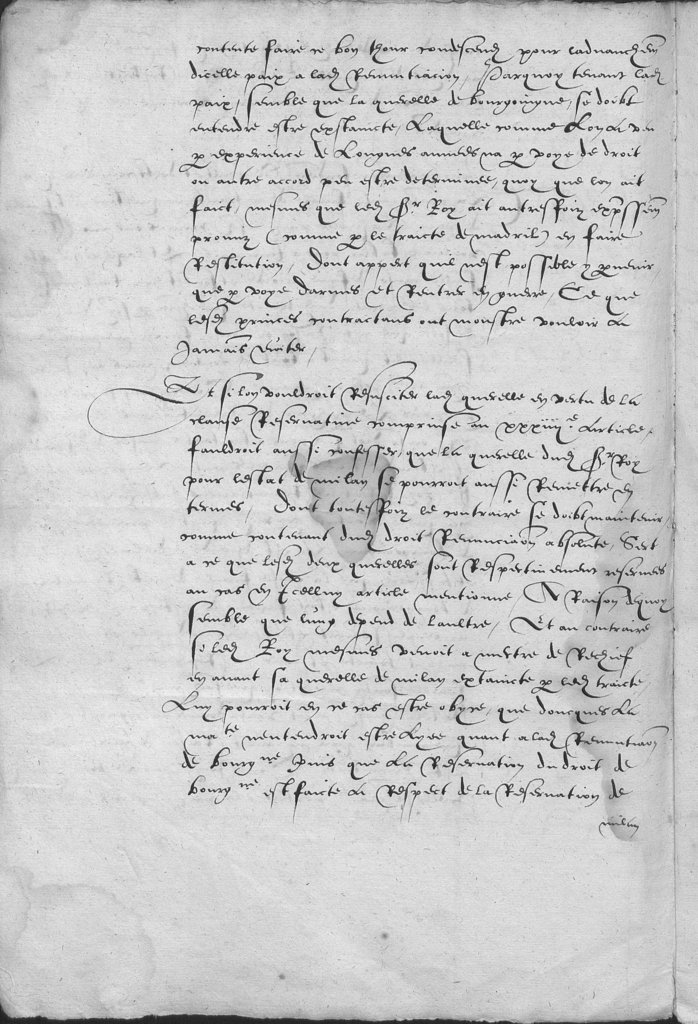 contente faire ce bon tour condescend pour ladvancem
dicelle paix a lad Renuntiacion, Parquoy tenant lad
paix, semble que la querelle de bourgoingne, se doibt
entendre estre exstaincte, Laquelle comme Lon a veu
p experience de Longues annees na p voye de droit
ou autre accord peu estre determinee, quoy que lon ait
faict, mesmes que led Sr Roy ait autresfoiz expssem
promiz (comme p le traicte de madril) en faire
Restitution, Dont appert quil nest possible y pvenir
que p voye darmes et Rentrer en guerre, Ce que
lesd princes contractans ont monstre vouloir a
Jamais eviter,
Et si lon vouldroit Resusciter lad querelle en vertu de la
clause Reservative comprinse au xxxiiiie article,
fauldroit aussi confesser, que la querelle dud Sr Roy
pour lestat de milan se pourroit aussi Remettre en
termes, Dont toutesfoiz le contraire se doibt maintenir,
comme contenant dud droit Renunciaon absolute, Sert
a ce que lesd deux querelles sont Respectivement reservees
au cas en Icelluy article mentionne, A Raison dequoy
semble que lung depend de laultre, Et au contraire
se led Roy mesmes venoit a mettre de Rechief
en avant sa querelle de milan extaincte p led traicte,
Luy pourroit en ce cas estre obyce, que doncques sa
mate nentendroit estre Lyee quant a lad Renuntiaon
de bourgne puis que La Reservation du droit de
bourgne est faicte a Respect de la Reservation de
milan